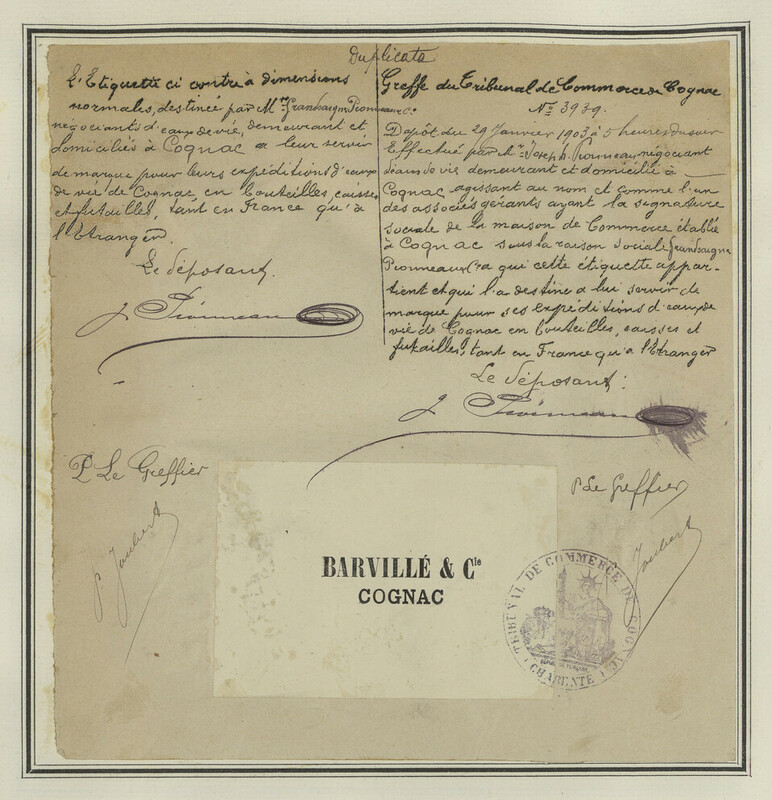 Duplicata
L'Etiquette ci contre à dimensions
normales, destinée par Mrs Grandsaigne Pionneau & Co.
négociants d'eaux de vie, demeurant et
domiciliés à Cognac a leur servir
de marque pour leurs expéditions d'eaux
de vie de Cognac en bouteilles, caisses
et futailles, tant en France qu'à
l'Etranger.
Le déposant.
J. Pionneau
Greffe du Tribunal de Commerce de Cognac
No 3939.
Dépôt du 29 Janvier 1903 à 5 heures du soir
Effectué par Mr Joseph Pionneau, négociant
d'eaux de vie demeurant et domicilié à
Cognac, agissant au nom et comme l'un
des associés gérants ayant la signature
sociale de la maison de Commerce établie
à Cognac sous la raison sociale Grandsaigne
Pionneau & Co a qui cette étiquette appar-
tient et qui l'a destine a lui servir de
marque pour ses expéditions d'eaux de
vie de Cognac en bouteilles, caisses et
futailles, tant en France qu'a l'Etranger
Le déposant :
J. Pionneau
P Le Greffier
P. Joubert
P Le Greffier
Joubert
BARVILLÉ & Cie
COGNAC
TRIBUNAL DE COMMERCE DE COGNAC
(CHARENTE)